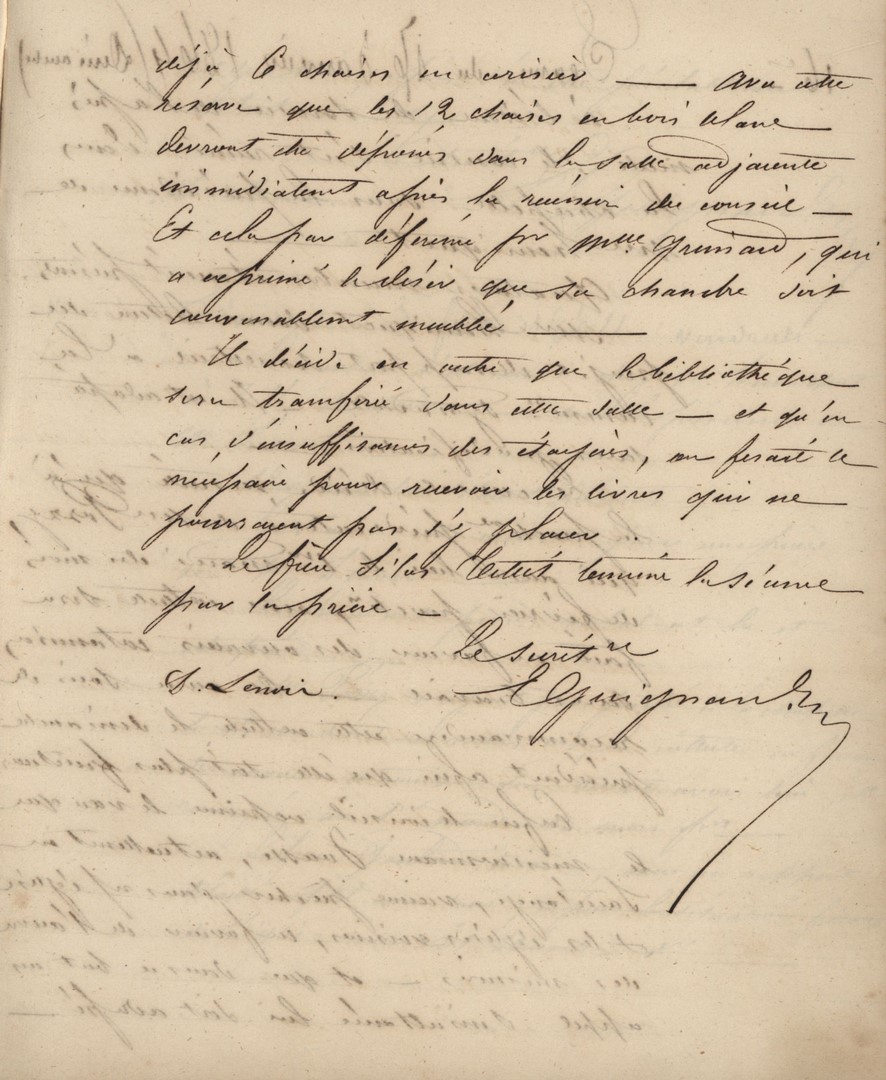 déjà 6 chaises en cerisier — avec cette
réserve que les 12 chaises en bois blanc
devront être déposées dans la salle adjacente
immédiatement après la réunion du conseil —
Et cela par déférence pr Mlle, qui
a exprimé le désir que sa chambre soit
convenablement meublée —
Il décide en outre que la bibliothèque
sera transférée dans cette salle — et qu'en
cas d'insuffisance des étagères, on ferait le
nécessaire pour recevoir les livres qui ne
pourraient pas s'y placer.
Le frère Silas termine la séance
par la prière —
Le secrét re
S. Lenoir. E Guignard